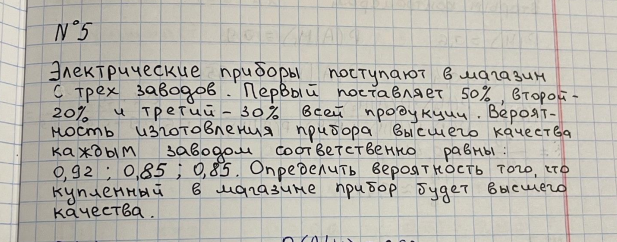 N°5
Электрические приборы поступают в магазин
с трех заводов. Первый поставляет 50%, второй -
20% и третий - 30% всей продукции. Вероят-
ность изготовления прибора высшего качества
каждым заводом соответственно равны:
0,92 ; 0,85 ; 0,85. Определить вероятность того, что
купленный в магазине прибор будет высшего
качества.